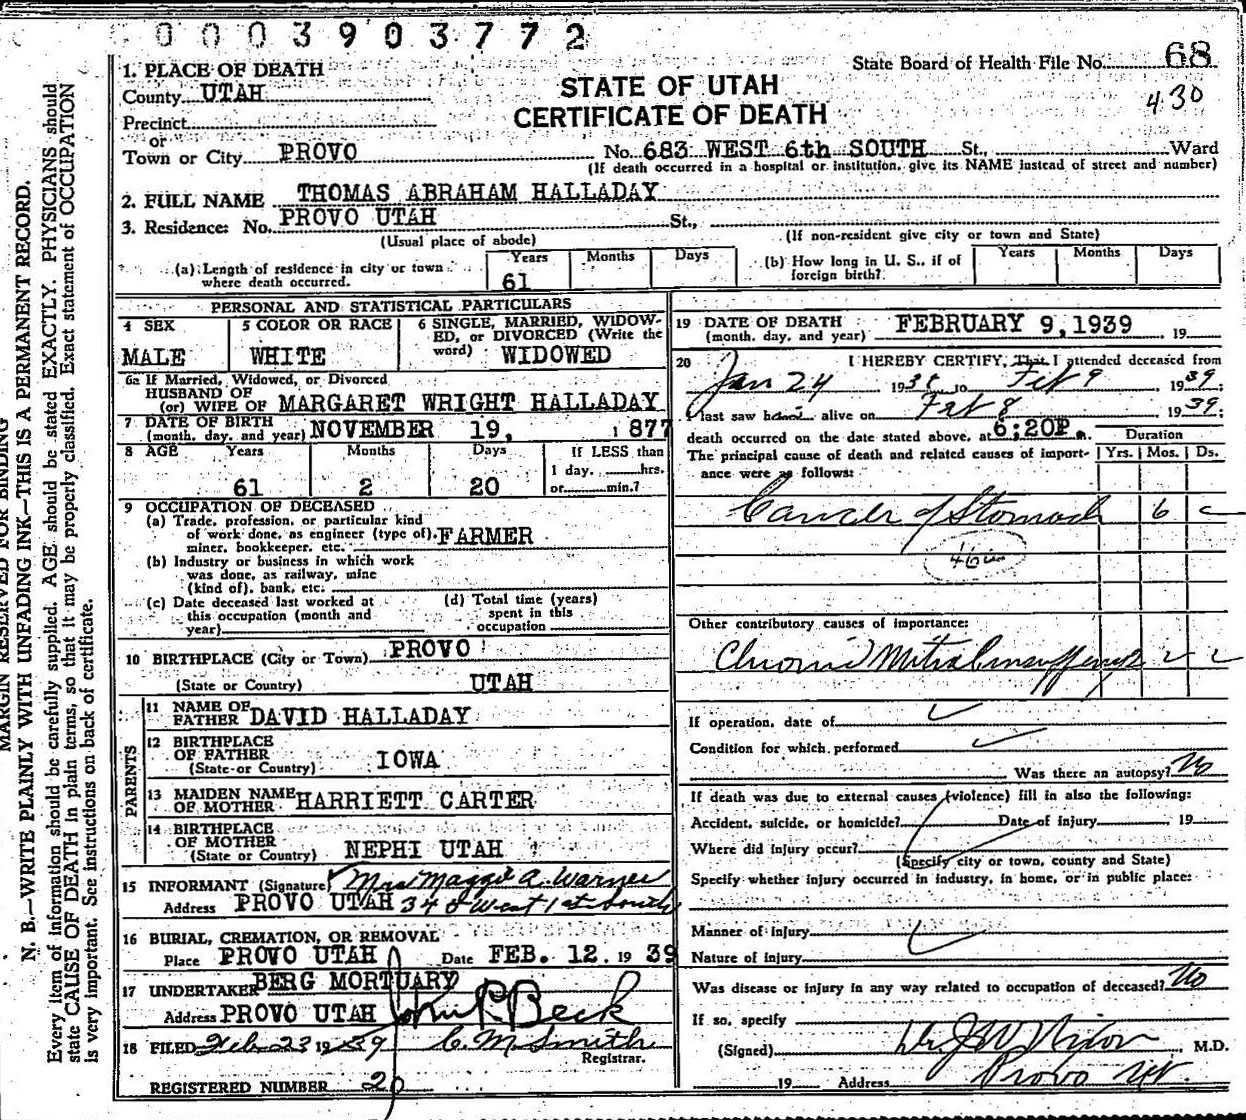 0003903772
State Board of Health File No. 68
430
STATE OF UTAH
CERTIFICATE OF DEATH
1. PLACE OF DEATH
County UTAH
Precinct
or
Town or City PROVO No. 683 WEST 6th SOUTH St., Ward
(If death occurred in a hospital or institution, give its NAME instead of street and number)
2. FULL NAME THOMAS ABRAHAM HALLADAY
3. Residence: No. PROVO UTAH St.,
(Usual place of abode) (If non-resident give city or town and State)
(a) Length of residence in city or town where death occurred. Years 61 Months Days
(b) How long in U. S., if of foreign birth? Years Months Days
PERSONAL AND STATISTICAL PARTICULARS
4 SEX MALE
5 COLOR OR RACE WHITE
6 SINGLE, MARRIED, WIDOW-
ED, or DIVORCED (Write the
word) WIDOWED
6a If Married, Widowed, or Divorced
HUSBAND OF
(or) WIFE OF MARGARET WRIGHT HALLADAY
7 DATE OF BIRTH
(month, day, and year) NOVEMBER 19, 1877
8 AGE Years Months Days If LESS than
1 day, hrs.
61 2 20 or min.?
9 OCCUPATION OF DECEASED
(a) Trade, profession, or particular kind
of work done, as engineer (type of), FARMER
miner, bookkeeper, etc.
(b) Industry or business in which work
was done, as railway, mine
(kind of), bank, etc.
(c) Date deceased last worked at
this occupation (month and
year)
(d) Total time (years)
spent in this
occupation
10 BIRTHPLACE (City or Town) PROVO
(State or Country) UTAH
PARENTS
11 NAME OF
FATHER DAVID HALLADAY
12 BIRTHPLACE
OF FATHER
(State or Country) IOWA
13 MAIDEN NAME
OF MOTHER HARRIETT CARTER
14 BIRTHPLACE
OF MOTHER
(State or Country) NEPHI UTAH
15 INFORMANT (Signature) Mrs Maggie A. Warner
Address PROVO UTAH 340 West 1st South
16 BURIAL, CREMATION, OR REMOVAL
Place PROVO UTAH Date FEB. 12. 1939
17 UNDERTAKER BERG MORTUARY
Address PROVO UTAH John R Beck
18 FILED Feb. 23 1939 C. M. Smith
Registrar.
REGISTERED NUMBER 20
19 DATE OF DEATH
(month, day, and year) FEBRUARY 9, 1939 19
20 I HEREBY CERTIFY, That I attended deceased from
Jan 24 193 to Feb 9, 1939;
I last saw h alive on Feb 8, 1939;
death occurred on the date stated above, at 6:20P.
Duration
The principal cause of death and related causes of import-
ance were as follows:
Yrs. Mos. Ds.
Cancer of Stomach 6
Other contributory causes of importance:
Chronic Mitral Insufficiency
If operation, date of
Condition for which performed
Was there an autopsy? No
If death was due to external causes (violence) fill in also the following:
Accident, suicide, or homicide? Date of injury 19
Where did injury occur?
(Specify city or town, county and State)
Specify whether injury occurred in industry, in home, or in public place:
Manner of injury
Nature of injury
Was disease or injury in any way related to occupation of deceased? No
If so, specify
(Signed) Dr J W Nixon M.D.
19 Address Provo Ut.
MARGIN RESERVED FOR BINDING
N. B.—WRITE PLAINLY WITH UNFADING INK—THIS IS A PERMANENT RECORD.
Every item of information should be carefully supplied. AGE should be stated EXACTLY. PHYSICIANS should
state CAUSE OF DEATH in plain terms, so that it may be properly classified. Exact statement of OCCUPATION
is very important. See instructions on back of certificate.